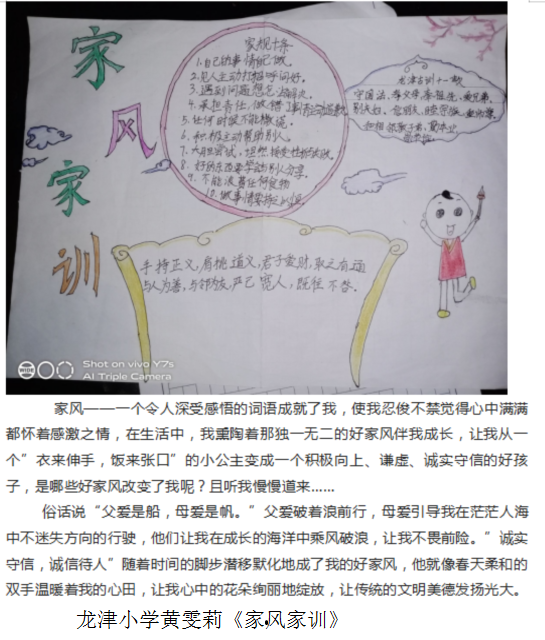 家
风
家
训
家规十条
1.自己的事情
2.见人主动打招呼问好。
3.遇到问题想
4.承担责任,做错了事
5.任何时候不能撒谎。
6.积极主动帮助别人。
7.大胆尝试,坦然接受
8.好的东西要学会别人分享。
9.不能浪费任何食物
10.做事情要持之以恒
龙津古训十一款
守国法、孝父母、
手持正义,肩挑道义,君子爱财,取之有道
与人为善,与邻为友,严己宽人,既往不咎.
Shot on vivo Y7s
AI Triple Camera
家风——一个令人深受感悟的词语成就了我，使我忍俊不禁觉得心中满满
都怀着感激之情，在生活中，我熏陶着那独一无二的好家风伴我成长，让我从一
个”衣来伸手，饭来张口”的小公主变成一个积极向上、谦虚、诚实守信的好孩
子，是哪些好家风改变了我呢？且听我慢慢道来......
俗话说“父爱是船，母爱是帆。”父爱破着浪前行，母爱引导我在茫茫人海
中不迷失方向的行驶，他们让我在成长的海洋中乘风破浪，让我不畏前险。”诚实
守信，诚信待人”随着时间的脚步潜移默化地成了我的好家风，他就像春天柔和的
双手温暖着我的心田，让我心中的花朵绚丽地绽放，让传统的文明美德发扬光大。
龙津小学黄雯莉《家风家训》